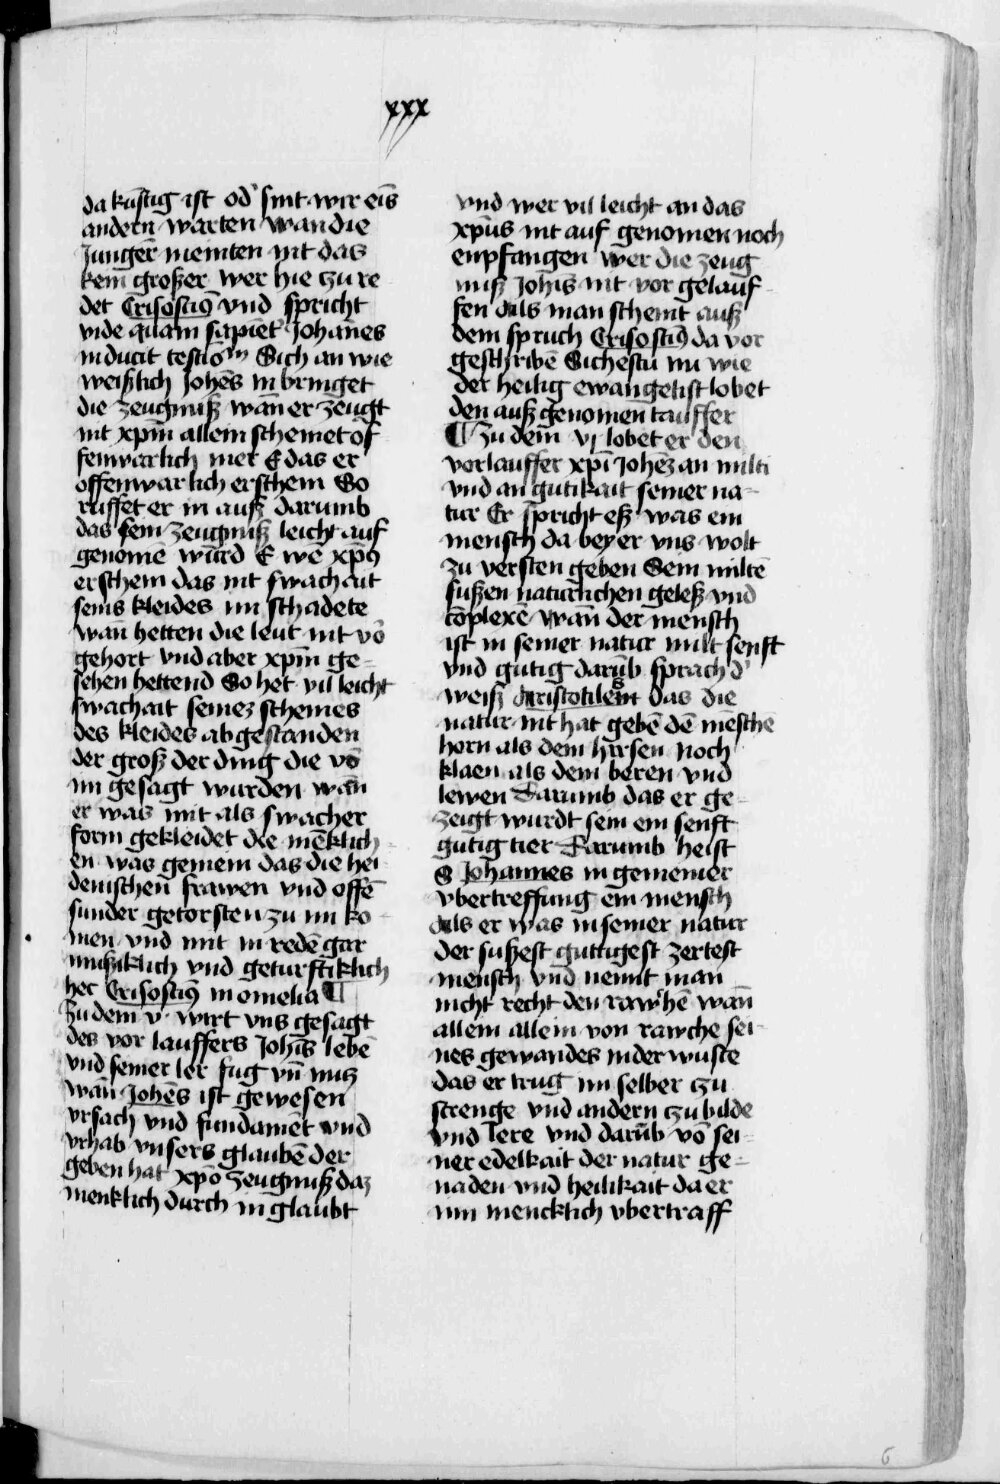 xxx
da kūftig ist od' sint wir eīs
andern warten wan die
Jungēr meinten nit das
kein großer wer hie zu re
det Crisostiꝰ vnd spricht
vide quam sapiēt Johānes
inducit testīoⁿᵐ Sich an wie
weißlich Johēs in bringet
die zeugnuß wān er zeugt
nit xp̄m allein scheinet of
fenwarlich mer E das er
offenwarlich erschein So
ruffet er in auß darumb
das sein zeugnuß leicht auf
genomē wurd E wē xp̄ꝰ
erschein das nit swachait
seins kleides im schadete
wān hetten die leut nit vō
gehort vnd aber xp̄m ge-
sehen hettend So het vil leicht
swachait seinez scheines
des kleides abgestanden
der groß der ding die vō
im gesagt wurden wān
er was mit als swacher
form gekleidet die mēklich
en was gemein das die hei
denischen frawen vnd offē
sunder getorsten zu im ko
men vnd mit in redē gar
mußiklich vnd geturstiklich
hec Crisostiꝰ in omelia ¶
Zu dem v. wirt vns gesagt
des vor lauffers Johīs lebē
vnd seiner ler fug vn̄ nutz
wān Johēs ist gewesen
vrsach vnd fundamēt vnd
vrhab vnsers glaubē der
geben hat xp̄o zeugnuß daz
menklich durch in glaubt
vnd wer vil leicht an das
xp̄us nit auf genomen noch
enpfangen wer die zeug
nuß Johīs nit vor gelauf-
fen Als man scheint auß
dem spruch Crisostiꝰ da vor
geschribē Sichestu nu wie
der heilig ewangelist lobet
den auß genomen tauffer
¶ Zu dem vj lobet er den
vorlauffer xp̄i Johēz an milti
vnd an gutikait seiner na-
tur Er spricht eß was ein
mensch da bey er vns wolt
zu versten geben Sein miltē
sußen naturlichen geleß vnd
cōplexē wān der mensch
ist in seiner natur milt senft
vnd gutig darūb sprach d'
weiß Aristotiles das die
natur nit hat gebē dē mēschē
horn als dem hirsen noch
klaen als dem beren vnd
lewen Darumb das er ge-
zeigt wurdt sein ein senft
gutig tier Darumb heist
S Johannes in gemeiner
vbertreffung ein mensch
Als er was in seiner natur
der sußest guttigest zertest
mensch vnd nennt man
nicht recht den rawhē wān
allein allein von rawche sei-
nes gewandes in der wuste
das er trug im selber czu
strenge vnd andern czu bilde
vnd lere vnd darūb vō sei-
ner edelkait der natur ge-
naden vnd heilikait da er
inn mencklich vbertraff
6